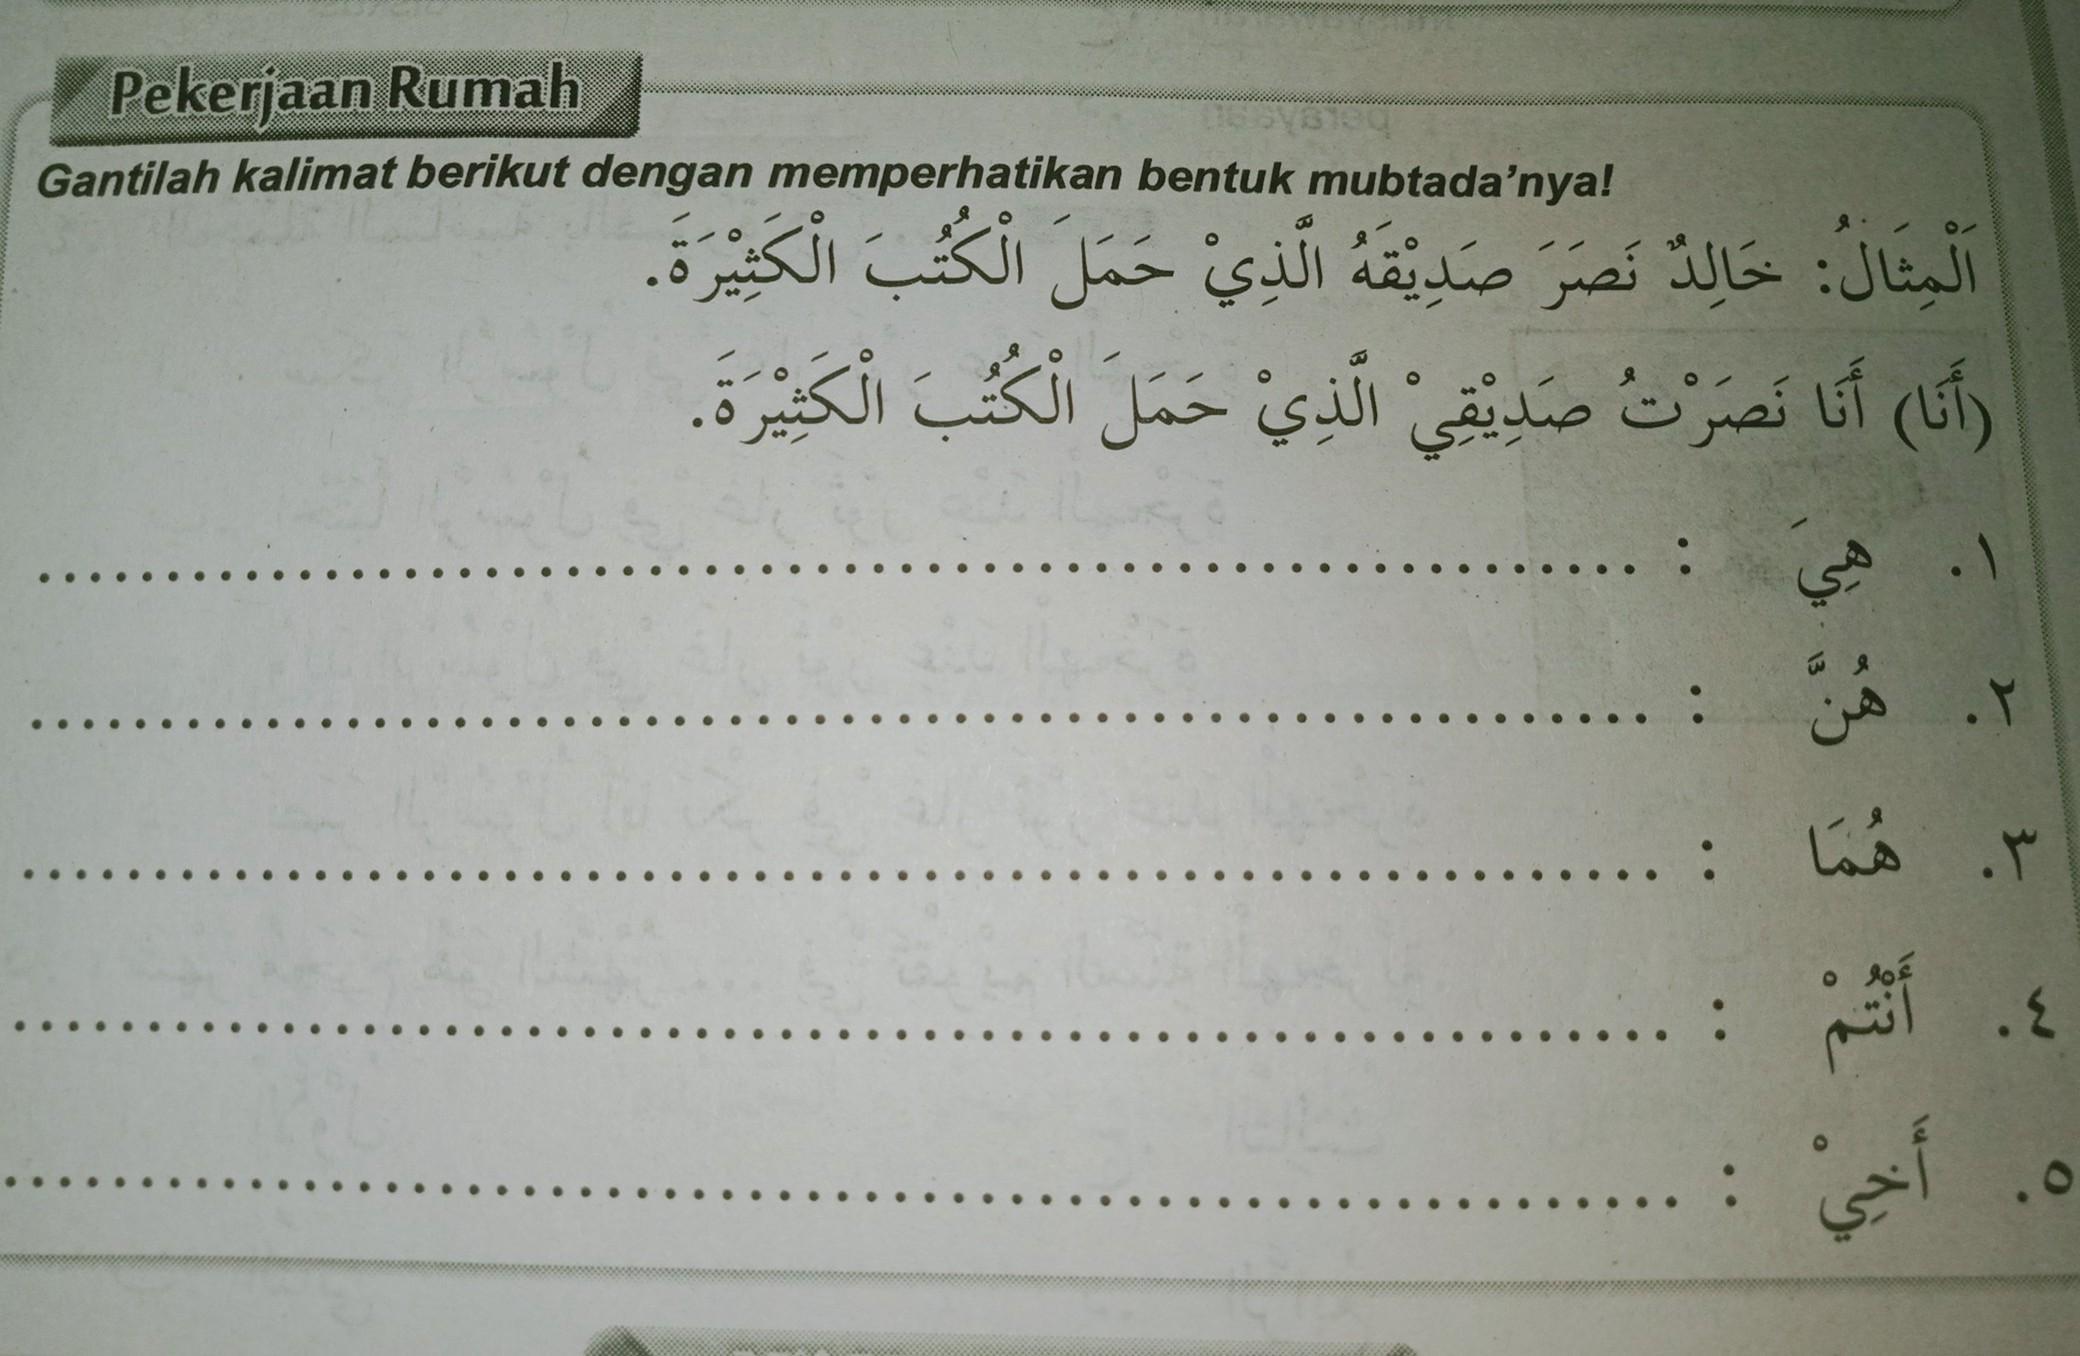 Pekerjaan Rumah
Gantilah kalimat berikut dengan memperhatikan bentuk mubtada'nya!
اَلْمِثَالُ: خَالِدٌ نَصَرَ صَدِيْقَهُ الَّذِيْ حَمَلَ الْكُتُبَ الْكَثِيْرَةَ.
(أَنَا) أَنَا نَصَرْتُ صَدِيْقِيْ الَّذِيْ حَمَلَ الْكُتُبَ الْكَثِيْرَةَ.
١. هِيَ : ..............................
٢. هُنَّ : ..............................
٣. هُمَا : ..............................
٤. أَنْتُمْ : ..............................
٥. أَخِيْ : ..............................